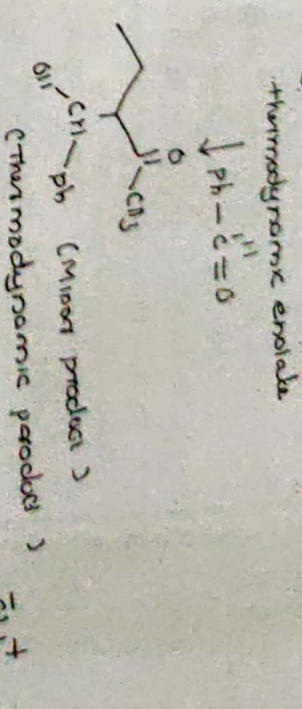 thermodynamic enolate
↓ Ph – C = O
H
O
CD3
OH CH – ph (Minor product)
(thermodynamic product)